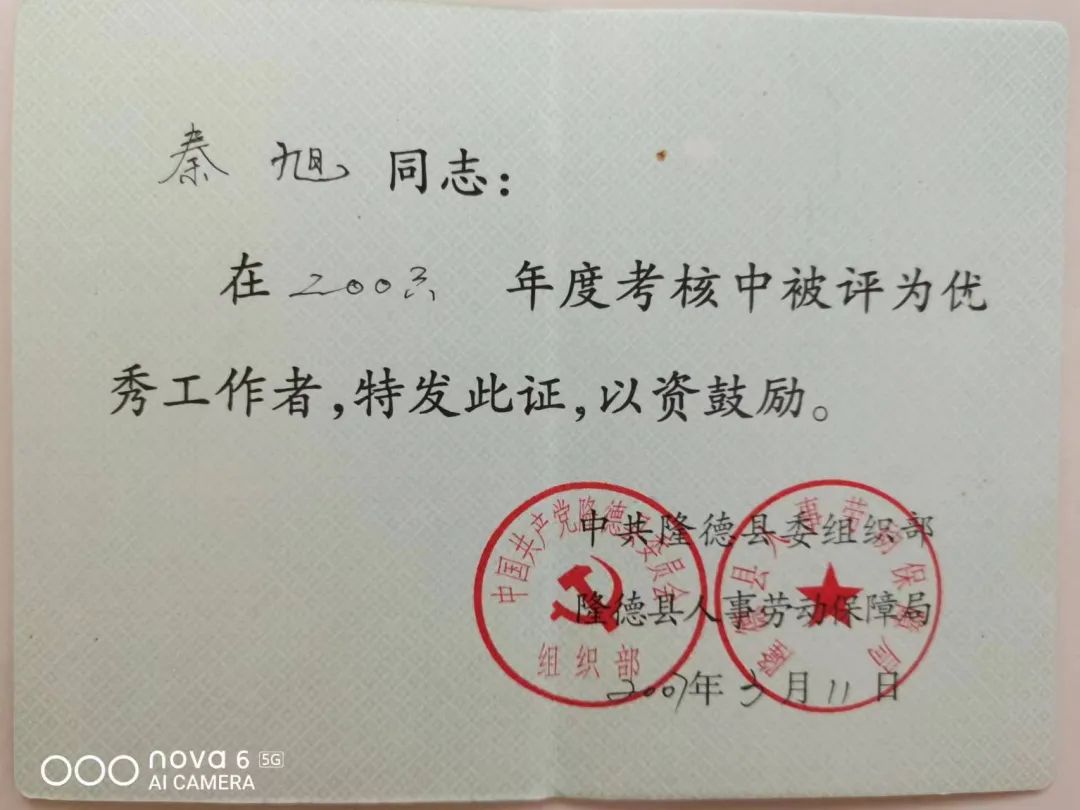 秦旭同志：
在2003年度考核中被评为优
秀工作者，特发此证，以资鼓励。
中共隆德县委组织部
隆德县人事劳动保障局
2007年3月11日
中国共产党隆德县委员会
组织部
隆德县人事劳动保障局
nova 6 5G
AI CAMERA